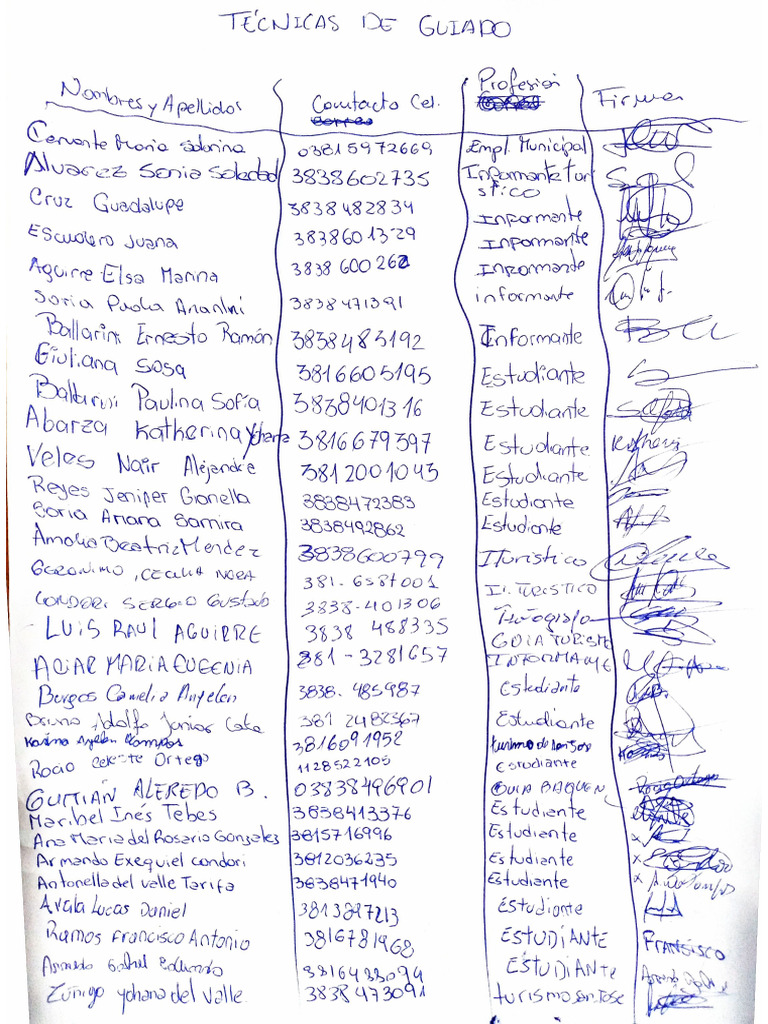 TÉCNICAS DE GUIADO
Nombres y Apellidos Contacto Cel. Profesión Firma
Cervante Maria Sabrina 03815972669 Empl. Municipal
Alvarez Sonia Soledad 3838602735 Informante Turístico
Cruz Guadalupe 3838482834 Informante
Escudero Juana 3838601329 Informante
Aguirre Elsa Marina 3838600262 Informante
Soria Paola 3838471391 informante
Ballarini Ernesto Ramón 3838483192 Informante
Giuliana Sosa 3816605195 Estudiante
Ballarini Paulina Sofía 3838401316 Estudiante
Abarza Katherina Yohana 3816679397 Estudiante
Veles Nair Alejandra 3812001043 Estudiante
Reyes Jeniper Gionella 3838472383 Estudiante
Soria Ariana Samira 3838492862 Estudiante
Amalia Beatriz Mendez 3838600799 I Turistico
GERONIMO, CECILIA NORA 381-6587001 In. TURISTICO
CONDORI SERGIO GUSTAVO 3838-401306
LUIS RAUL AGUIRRE 3838 488335 GUIA TURISTI
ACIAR MARIA EUGENIA 381-3281657 INFORMANTE
Burgos Camelia Angelen 3838-485987 Estudiante
Bruno Adolfo Junior 381 2482367 Estudiante
Karina Ayelen Campos 3816091952 turismo de san Jose
Rocio Celeste Ortega 1128522105 Estudiante
GUITIÁN ALFREDO B. 03838496901 GUIA BAQUEN
Maribel Inés Tebes 3838413376 Estudiante
Ana Maria del Rosario Gonzales 3815716996 Estudiante
Armando Exequiel Condori 3812036235 Estudiante
Antonella del valle Tarifa 3838471940 Estudiante
Ayala Lucas Daniel 3813897213 Estudiante
Ramos Francisco Antonio 3816781968 ESTUDIANTE FRANSISCO
3816433094 ESTUDIANTE
Zúñigo Yohana del Valle 3838473091 turismo san Jose